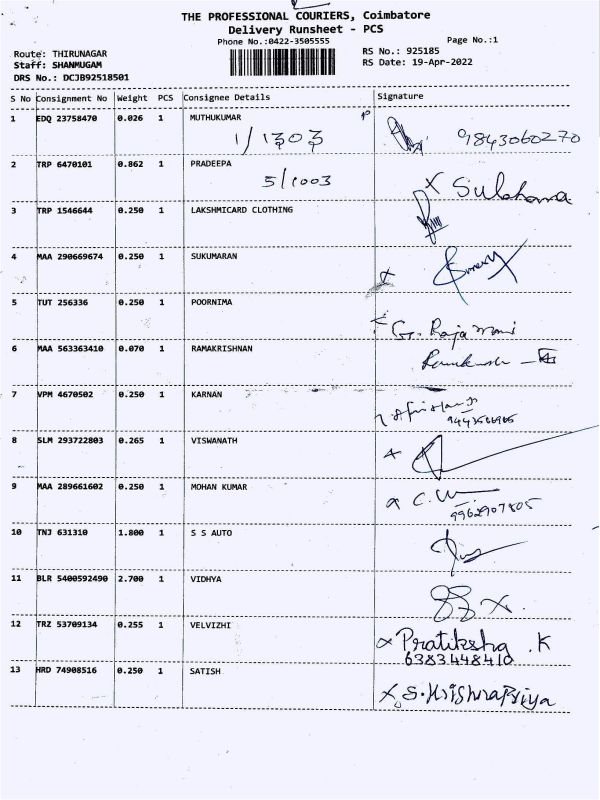 THE PROFESSIONAL COURIERS, Coimbatore
Delivery Runsheet - PCS
Phone No.:0422-3505555
Page No.:1
Route: THIRUNAGAR
RS No.: 925185
Staff: SHANMUGAM
RS Date: 19-Apr-2022
DRS No.: DCJB92518501
S No Consignment No Weight PCS Consignee Details Signature
1 EDQ 23758470 0.026 1 MUTHUKUMAR
1/1303 9843060270
2 TRP 6470101 0.862 1 PRADEEPA
5/1003 X Sulohana
3 TRP 1546644 0.250 1 LAKSHMICARD CLOTHING
4 MAA 290669674 0.250 1 SUKUMARAN
5 TUT 256336 0.250 1 POORNIMA
G. Raja mani
6 MAA 563363410 0.070 1 RAMAKRISHNAN
7 VPM 4670502 0.250 1 KARNAN
8 SLM 293722803 0.265 1 VISWANATH
9 MAA 289661602 0.250 1 MOHAN KUMAR
9962907805
10 TNJ 631310 1.800 1 S S AUTO
11 BLR 5400592490 2.700 1 VIDHYA
12 TRZ 53709134 0.255 1 VELVIZHI
Pratiksha .K
6383448410
13 HRD 74908516 0.250 1 SATISH
X S.KrishnaPriya